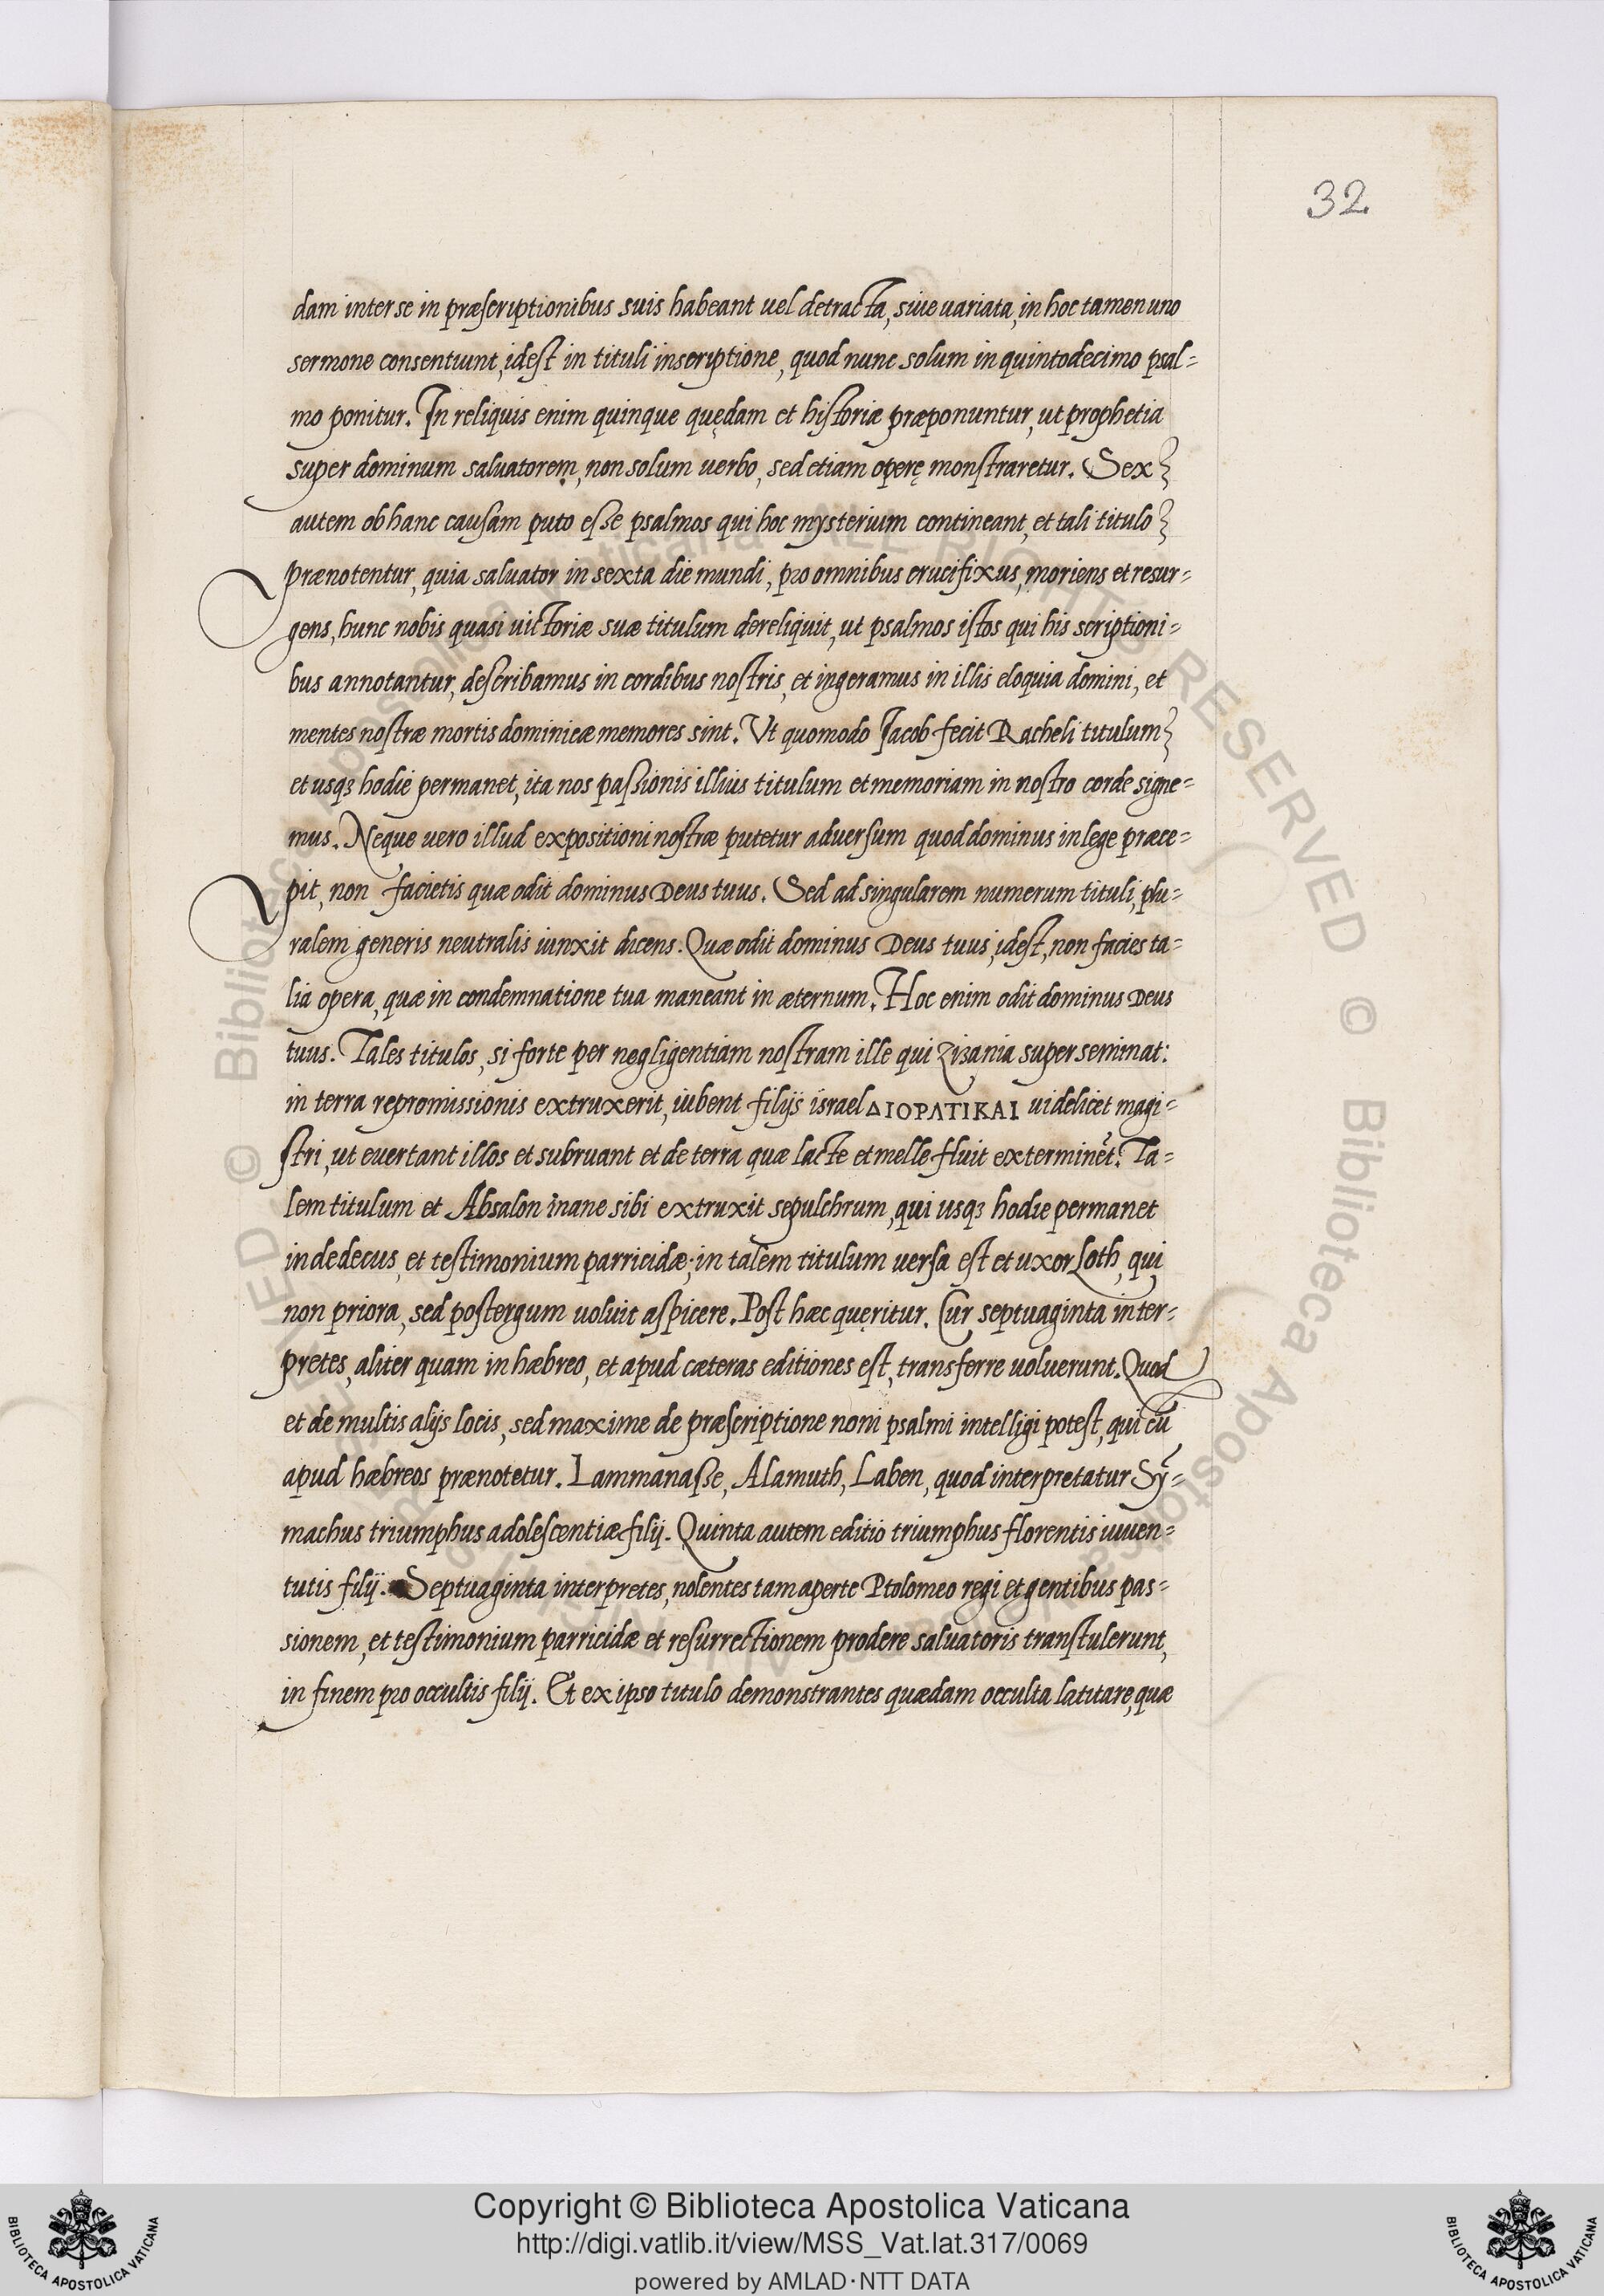 32
dam inter se in præscriptionibus suis habeant uel detracta, siue uariata, in hoc tamen uno
sermone consentiunt, idest in tituli inscriptione, quod nunc solum in quintodecimo psal=
mo ponitur. In reliquis enim quinque quędam et historiæ præponuntur, ut prophetia
super dominum saluatorem, non solum uerbo, sed etiam operę monstraretur. Sex
autem ob hanc causam puto esse psalmos qui hoc mysterium contineant, et tali titulo
prænotentur, quia saluator in sexta die mundi, pro omnibus crucifixus, moriens et resur=
gens, hunc nobis quasi uictoriæ suæ titulum dereliquit, ut psalmos istos qui his scriptioni=
bus annotantur, describamus in cordibus nostris, et ingeramus in illis eloquia domini, et
mentes nostræ mortis dominicæ memores sint. Vt quomodo Jacob fecit Racheli titulum
et usqꝫ hodie permanet, ita nos passionis illius titulum et memoriam in nostro corde signe=
mus. Neque uero illud expositioni nostræ putetur aduersum quod dominus in lege præce=
pit, non facietis quæ odit dominus Deus tuus. Sed ad singularem numerum tituli, plu=
ralem generis neutralis iunxit dicens. Quæ odit dominus Deus tuus, idest, non facies ta=
lia opera, quæ in condemnatione tua maneant in æternum. Hoc enim odit dominus Deus
tuus. Tales titulos, si forte per negligentiam nostram ille qui zizania superseminat:
in terra repromissionis extruxerit, iubent filijs israel ΔΙΟΡΛΤΙΚΑΙ uidelicet magi=
stri, ut euertant illos et subruant et de terra quæ lacte et melle fluit exterminẽt. Ta=
lem titulum et Absalon inane sibi extruxit sepulchrum, qui usqꝫ hodie permanet
in dedecus, et testimonium parricidæ; in talem titulum uersa est et uxor Loth, qui
non priora, sed postergum uoluit aspicere. Post hæc quęritur. Cur septuaginta inter=
pretes, aliter quam in hæbreo, et apud cæteras editiones est, transferre uoluerunt. Quod
et de multis alijs locis, sed maxime de præscriptione noni psalmi intelligi potest, qui cũ
apud hæbreos prænotetur. Lammanasse, Alamuth, Laben, quod interpretatur Sỹ=
machus triumphus adolescentiæ filij. Quinta autem editio triumphus florentis iuuen=
tutis filij. Septuaginta interpretes, nolentes tam aperte Ptolomeo regi et gentibus pas=
sionem, et testimonium parricidæ et resurrectionem prodere saluatoris transtulerunt,
in finem pro occultis filij. Et ex ipso titulo demonstrantes quædam occulta latitare, quæ
Copyright © Biblioteca Apostolica Vaticana
http://digi.vatlib.it/view/MSS_Vat.lat.317/0069
powered by AMLAD·NTT DATA
BIBLIOTECA APOSTOLICA VATICANA
BIBLIOTECA APOSTOLICA VATICANA